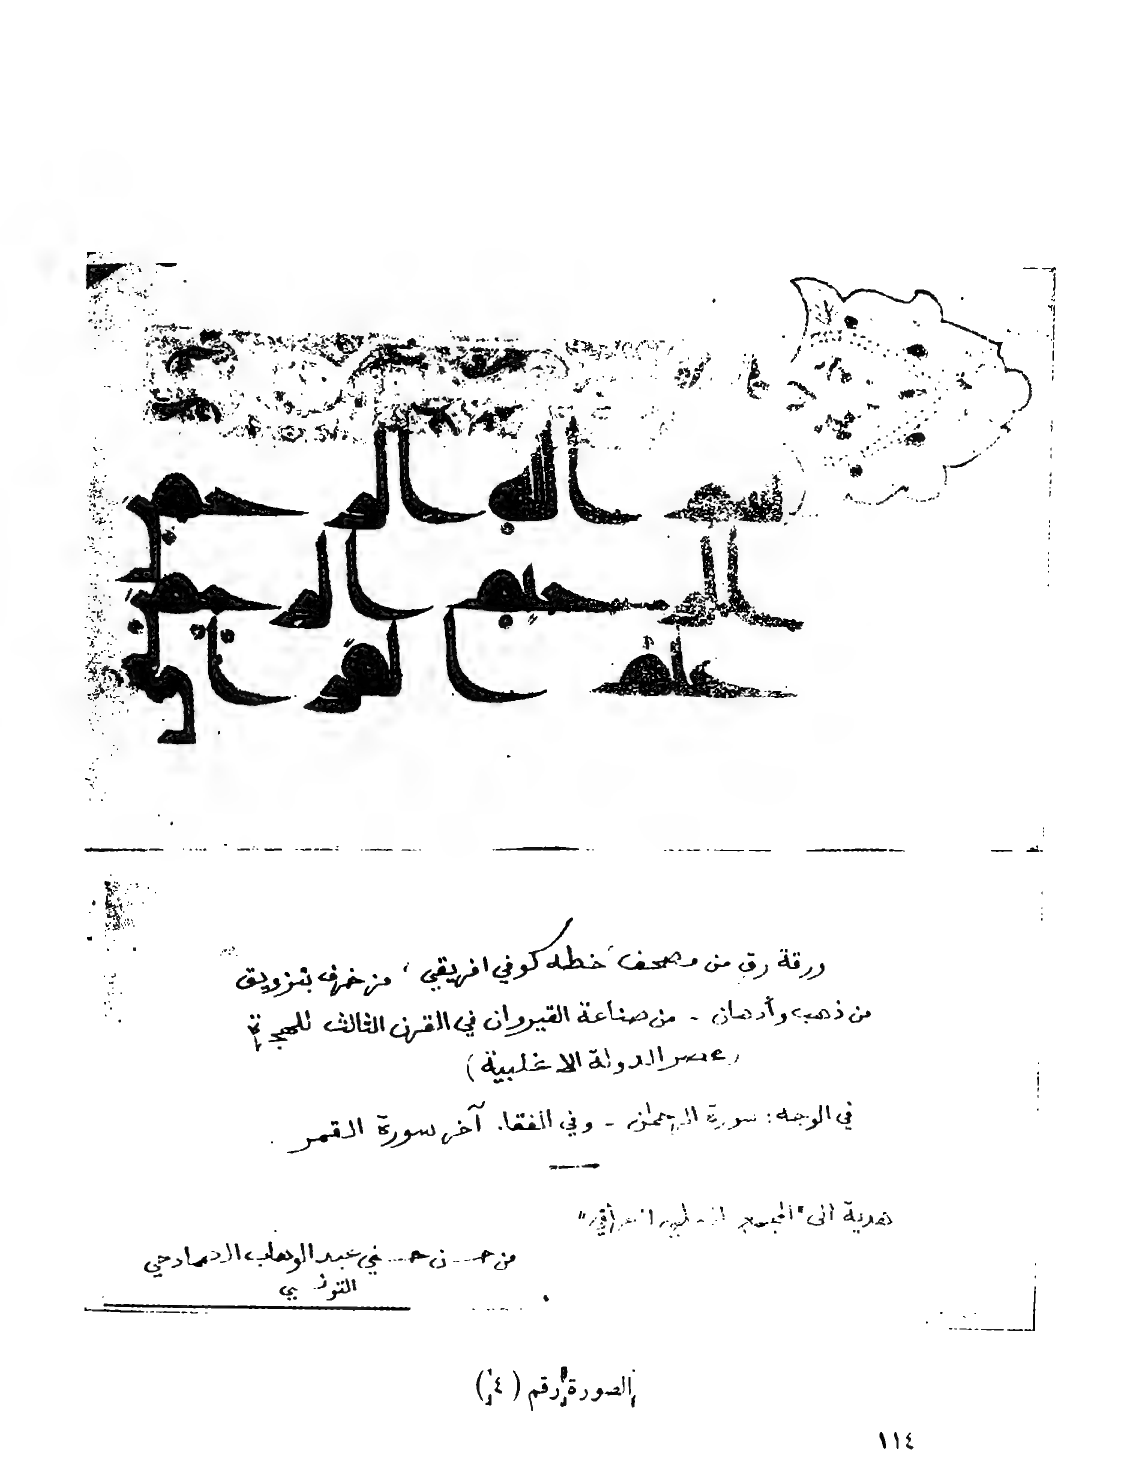 بسم الله الرحمن
الرحيم الرحمن
علم القرآن
ورقة رق من مصحف، خطه كوفي افريقي، مزخرف بتزويق
من ذهب وأدهان - من صناعة القيروان في القرن الثالث للهجرة
(عصر الدولة الاغلبية)
في الوجه: سورة الرحمان - وفي القفا. آخر سورة القمر
هدية الى "المجمع العلمي العراقي"
من حسن حسني عبد الوهاب الصمادحي
التونسي
الصورة رقم (٤)
١١٤